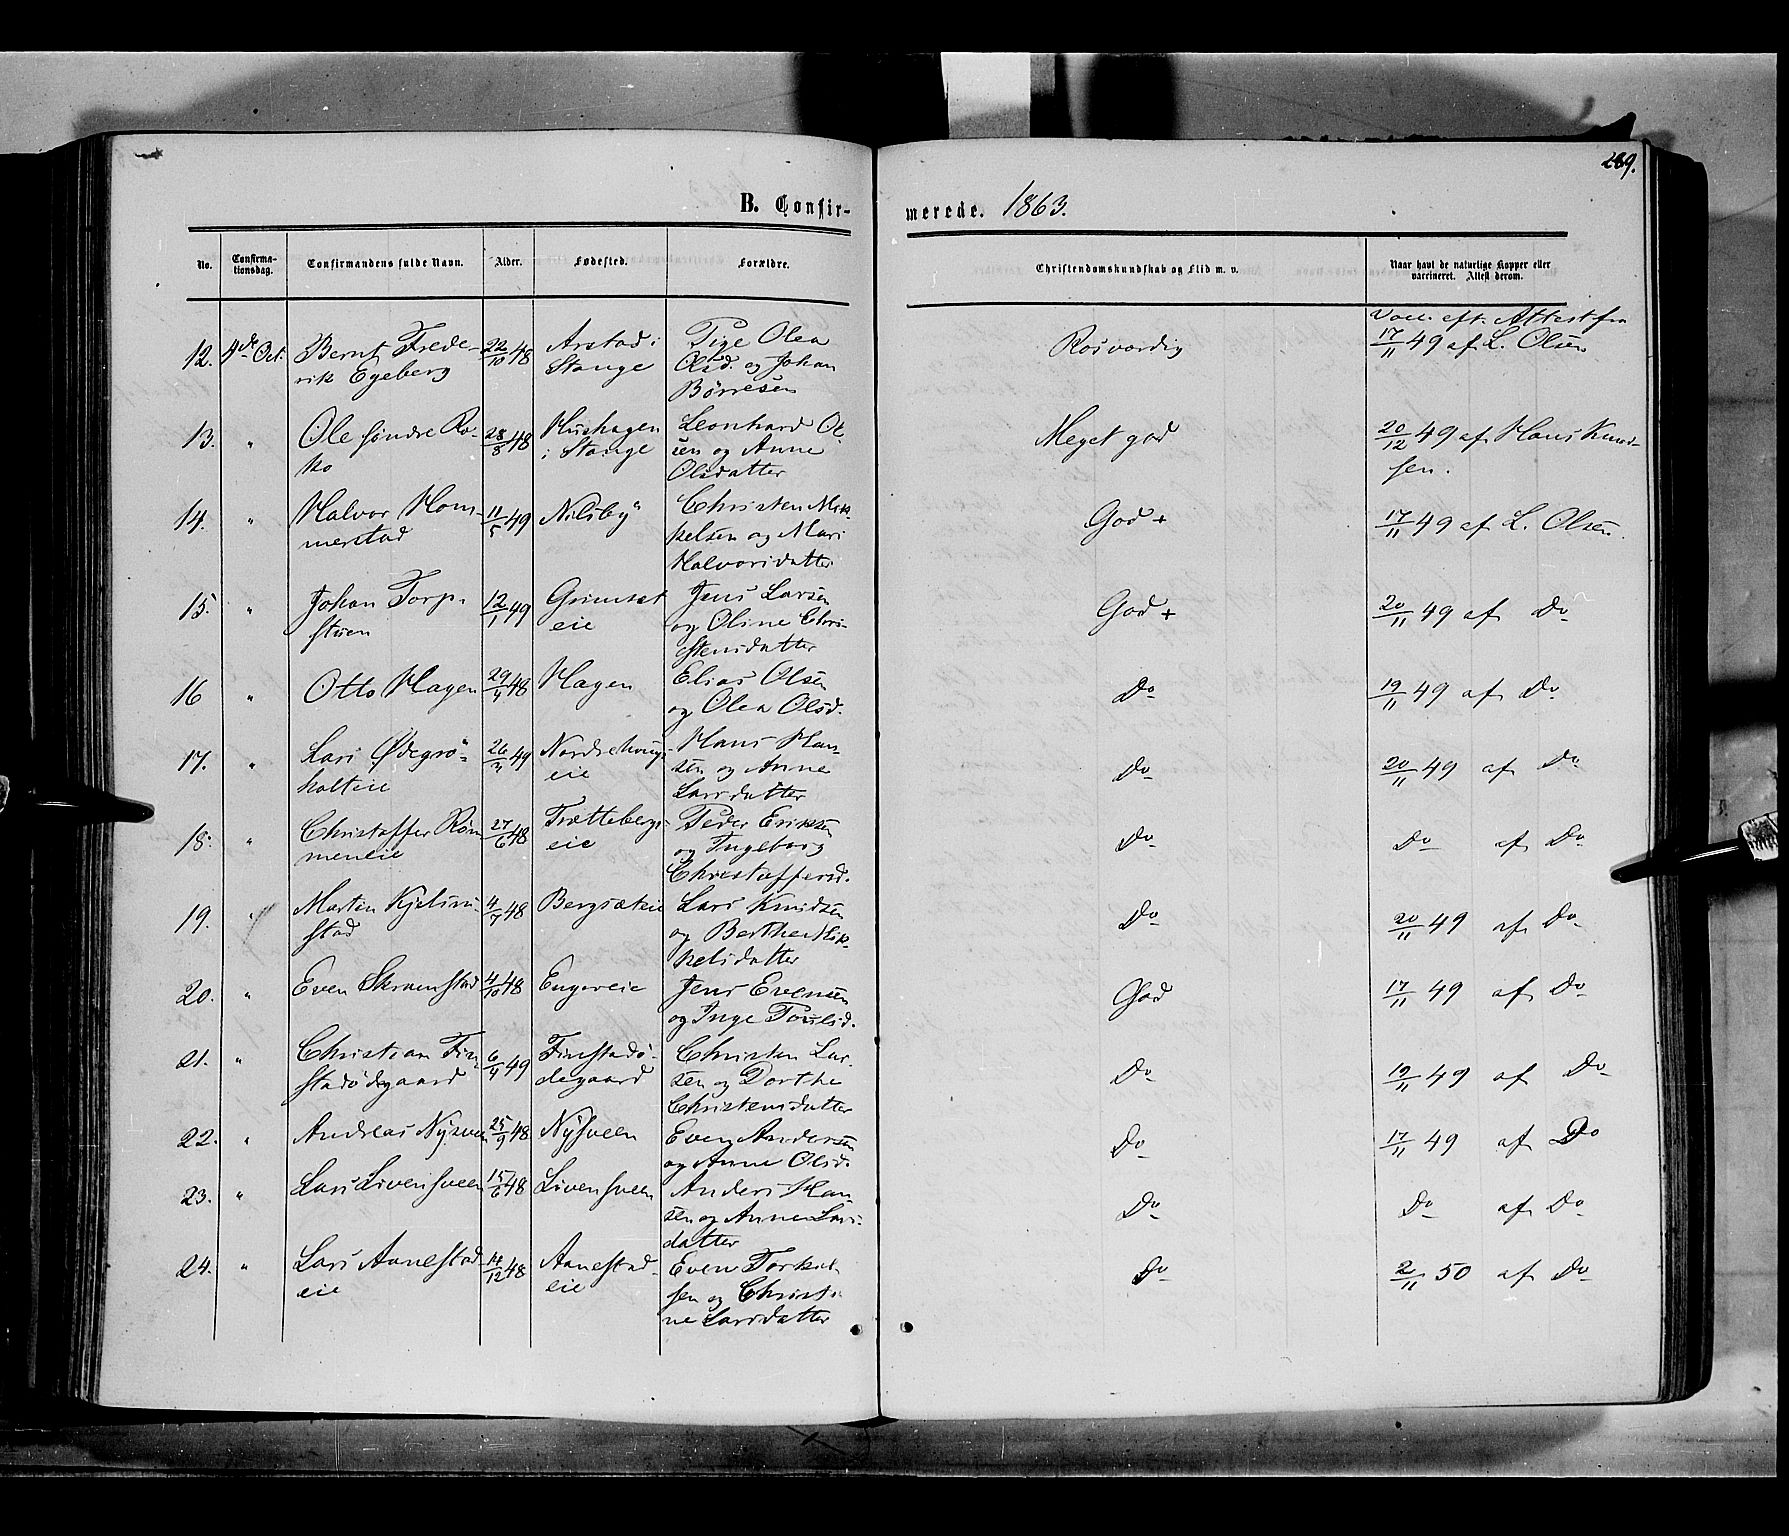 289.
B. Confir-
merede. 1863.
No. Confirma-tionsdag. Confirmandens fulde Navn. Alder. Fødested. Forældre. Christendomskundskab og Flid m. v. Naar havt de naturlige Kopper eller vaccineret. Attest derom.
Vacc. eft. Attest fra
12. 4de Oct. Bernt Frede- 22/10 48 Arstad i Pige Olea Rosværdig 17/11 49 af L. Olsen
rik Egeberg Stange Olsd. og Johan
Børresen
13. " Ole søndre Ro- 28/8 48 Hushagen Leonhard Ol- Meget god 20/12 49 af Hans Knud-
ko i Stange sen og Anne sen.
Olsdatter
14. " Halvor Hom- 11/5 49 Nilsby Christen Mik- God + 17/11 49 af L. Olsen
merstad kelsen og Mari
Halvorsdatter
15. " Johan Torp- 12/1 49 Grimset Jens Larsen God + 20/11 49 af Do
stuen eie og Oline Chri-
stensdatter
16 " Otto Hagen 29/4 48 Hagen Elias Olsen Do 19/11 49 af Do
og Olea Olsd.
17. " Lars Ødegrø- 49 Nordre Hans Han- Do 20/11 49 af Do
holteie eie sen og Anne
Larsdatter
18. " Christoffer Röm 27/6 48 Frættebergs- Peder Eriksen Do Do af Do
meneie eie og Ingeborg
Christoffersd.
19. " Morten Kjelsru- 4/7 48 Bergsæteie Lars Knudsen Do 20/11 49 af Do
stad og Berthe Mik-
kelsdatter
20. " Even Skramstad 4/10 48 Engereie Jens Evensen God 17/11 49 af Do
og Inge Poulsd.
21. " Christian Fin- 6/4 49 Finstadø- Christen Lar- Do 19/11 49 af Do
stadødegaard degaard sen og Dorthe
Christensdatter
22. " Andreas Nysveen 25/9 48 Nysveen Even Andersen Do 17/11 49 af Do
og Anne Olsd.
23. " Lars Livensveen 15/6 48 Livensveen Anders Han- Do Do af Do
sen og Anne Lars-
datter
24. " Lars Aanestad- 14/12 48 Aanestad- Even Torkel- Do 2/11 50 af Do
eie eie sen og Christi-
ne Larsdatter